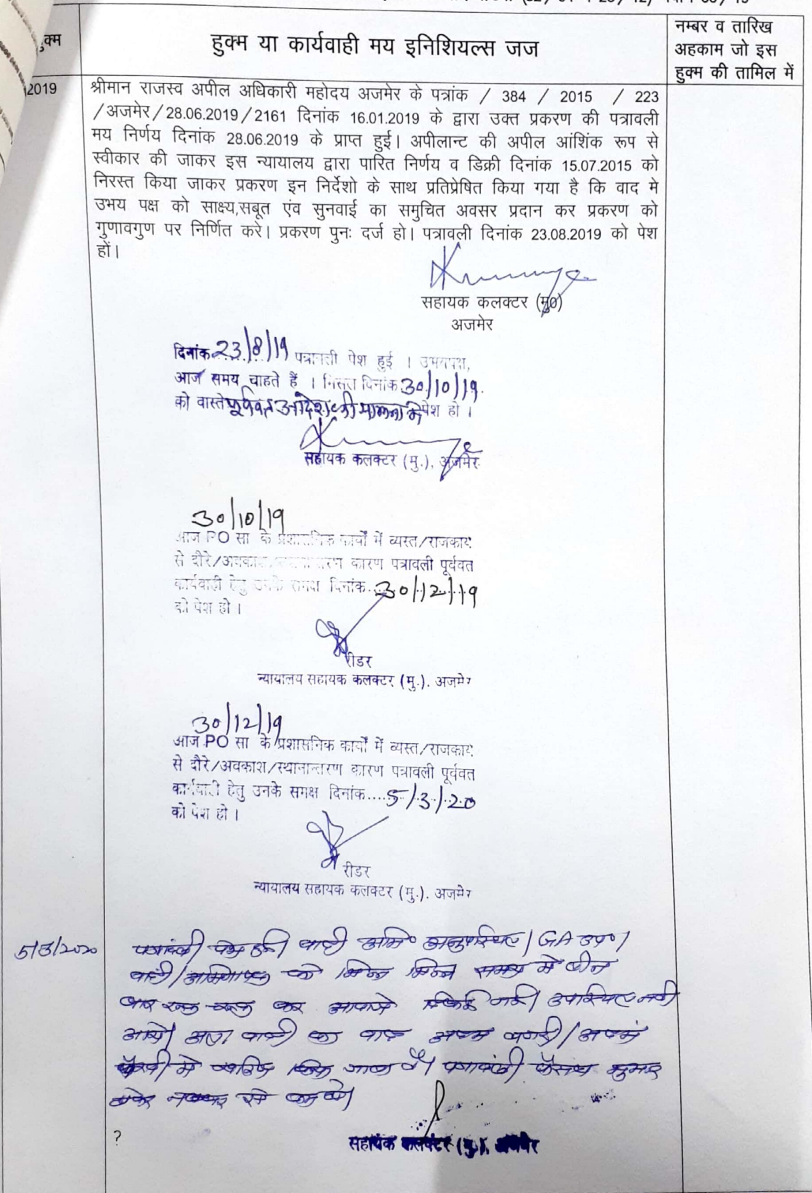 हुक्म या कार्यवाही मय इनिशियल्स जज
नम्बर व तारिख
अहकाम जो इस
हुक्म की तामिल में
2019
श्रीमान राजस्व अपील अधिकारी महोदय अजमेर के पत्रांक / 384 / 2015 / 223
/अजमेर/28.06.2019/2161 दिनांक 16.01.2019 के द्वारा उक्त प्रकरण की पत्रावली
मय निर्णय दिनांक 28.06.2019 के प्राप्त हुई। अपीलान्ट की अपील आंशिक रूप से
स्वीकार की जाकर इस न्यायालय द्वारा पारित निर्णय व डिक्री दिनांक 15.07.2015 को
निरस्त किया जाकर प्रकरण इन निर्देशो के साथ प्रतिप्रेषित किया गया है कि वाद मे
उभय पक्ष को साक्ष्य,सबूत एंव सुनवाई का समुचित अवसर प्रदान कर प्रकरण को
गुणावगुण पर निर्णित करे। प्रकरण पुनः दर्ज हो। पत्रावली दिनांक 23.08.2019 को पेश
हों।
सहायक कलक्टर (मु0)
अजमेर
दिनांक 23/8/19 पत्रावली पेश हुई । उभयपक्ष,
आज समय चाहते हैं । मिसल दिनांक 30/10/19
को वास्ते पूर्ववत आदेश की पालना में पेश हो ।
सहायक कलक्टर (मु.). अजमेर
30/10/19
आज PO सा के प्रशासनिक कार्यों में व्यस्त/राजकार्य
से दौरे/अवकाश/स्थानान्तरण कारण पत्रावली पूर्ववत
कार्यवाही हेतु उनके समक्ष दिनांक...30/12/19
को पेश हो ।
रीडर
न्यायालय सहायक कलक्टर (मु.). अजमेर
30/12/19
आज PO सा के प्रशासनिक कार्यों में व्यस्त/राजकार्य
से दौरे/अवकाश/स्थानान्तरण कारण पत्रावली पूर्ववत
कार्यवाही हेतु उनके समक्ष दिनांक....5/3/20
को पेश हो ।
रीडर
न्यायालय सहायक कलक्टर (मु.). अजमेर
5/3/2020
पत्रावली पेश हुई। वादी अभि० अनुपस्थित। GA उप०।
वादी/अभिभाषक को भिन्न भिन्न समय मे तीन
बार नही उपस्थित नही
आये। अतः वादी का वाद अदम हाजरी/अदम
पैरवी मे खारिज किया जाता है। पत्रावली फैसल शुमार
होकर नम्बर से कम हो।
?
सहायक कलक्टर (मु.). अजमेर